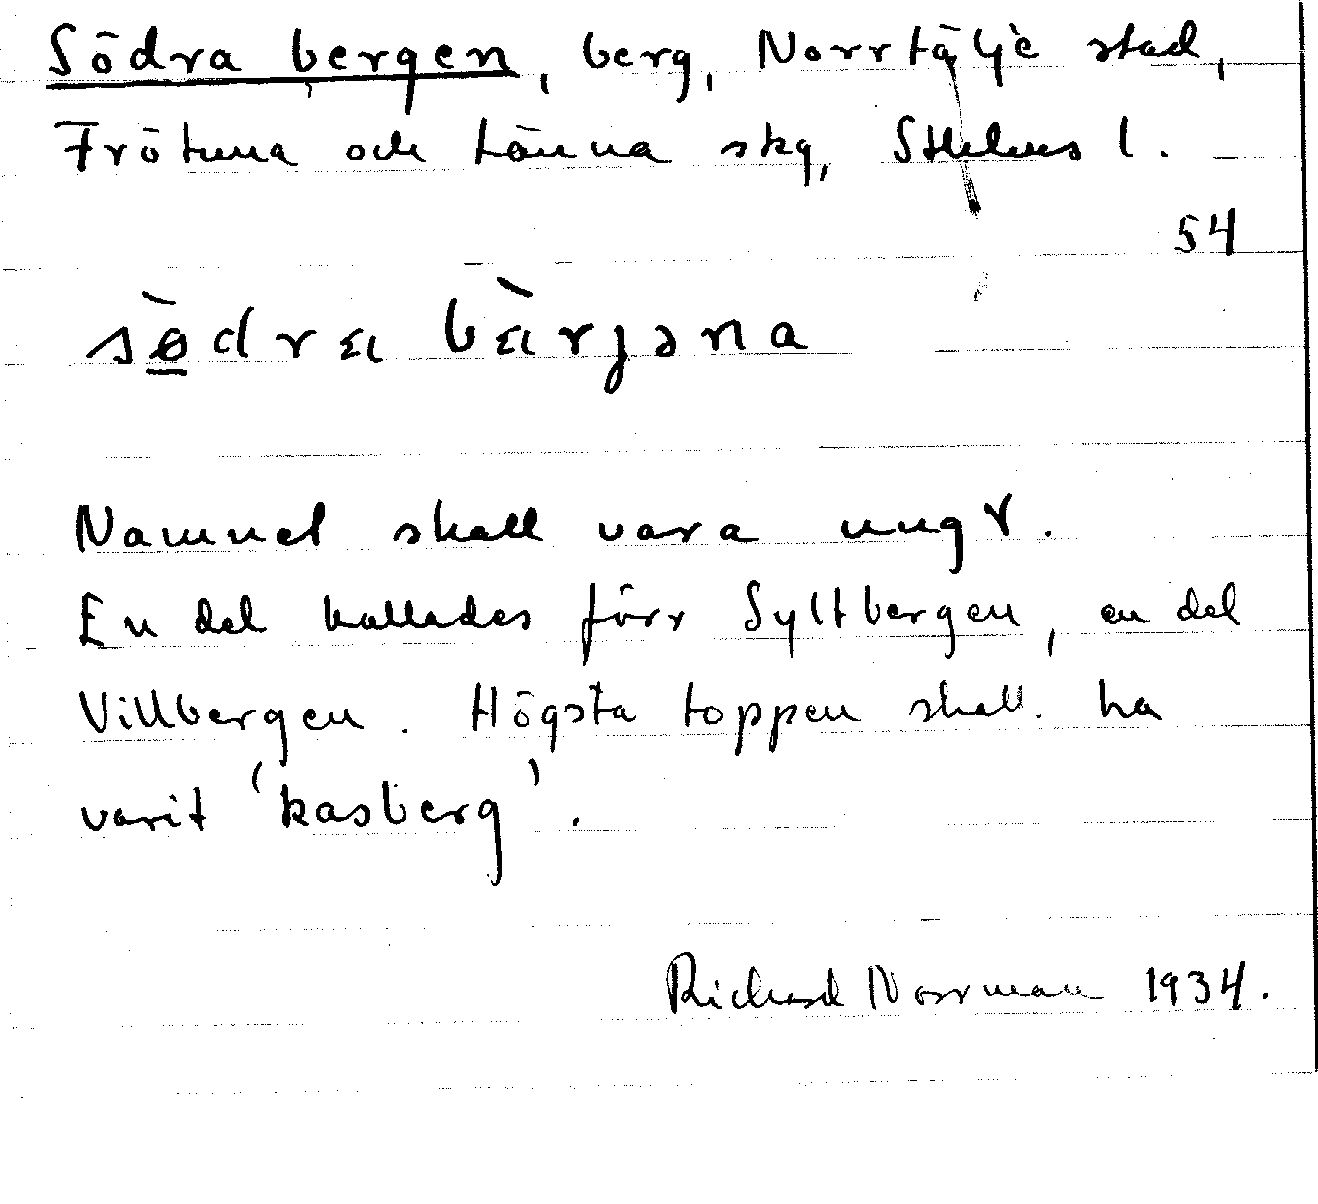 Södra bergen, berg, Norrtälje stad,
Frötuna och Länna skg, Sthlms l.
54
sø̲̀dra bàrjəna
Namnet skall vara ungt.
En del kallades förr Syltbergen, en del
Villbergen. Högsta toppen skall ha
varit 'kasberg'.
Richard Norrman 1934.